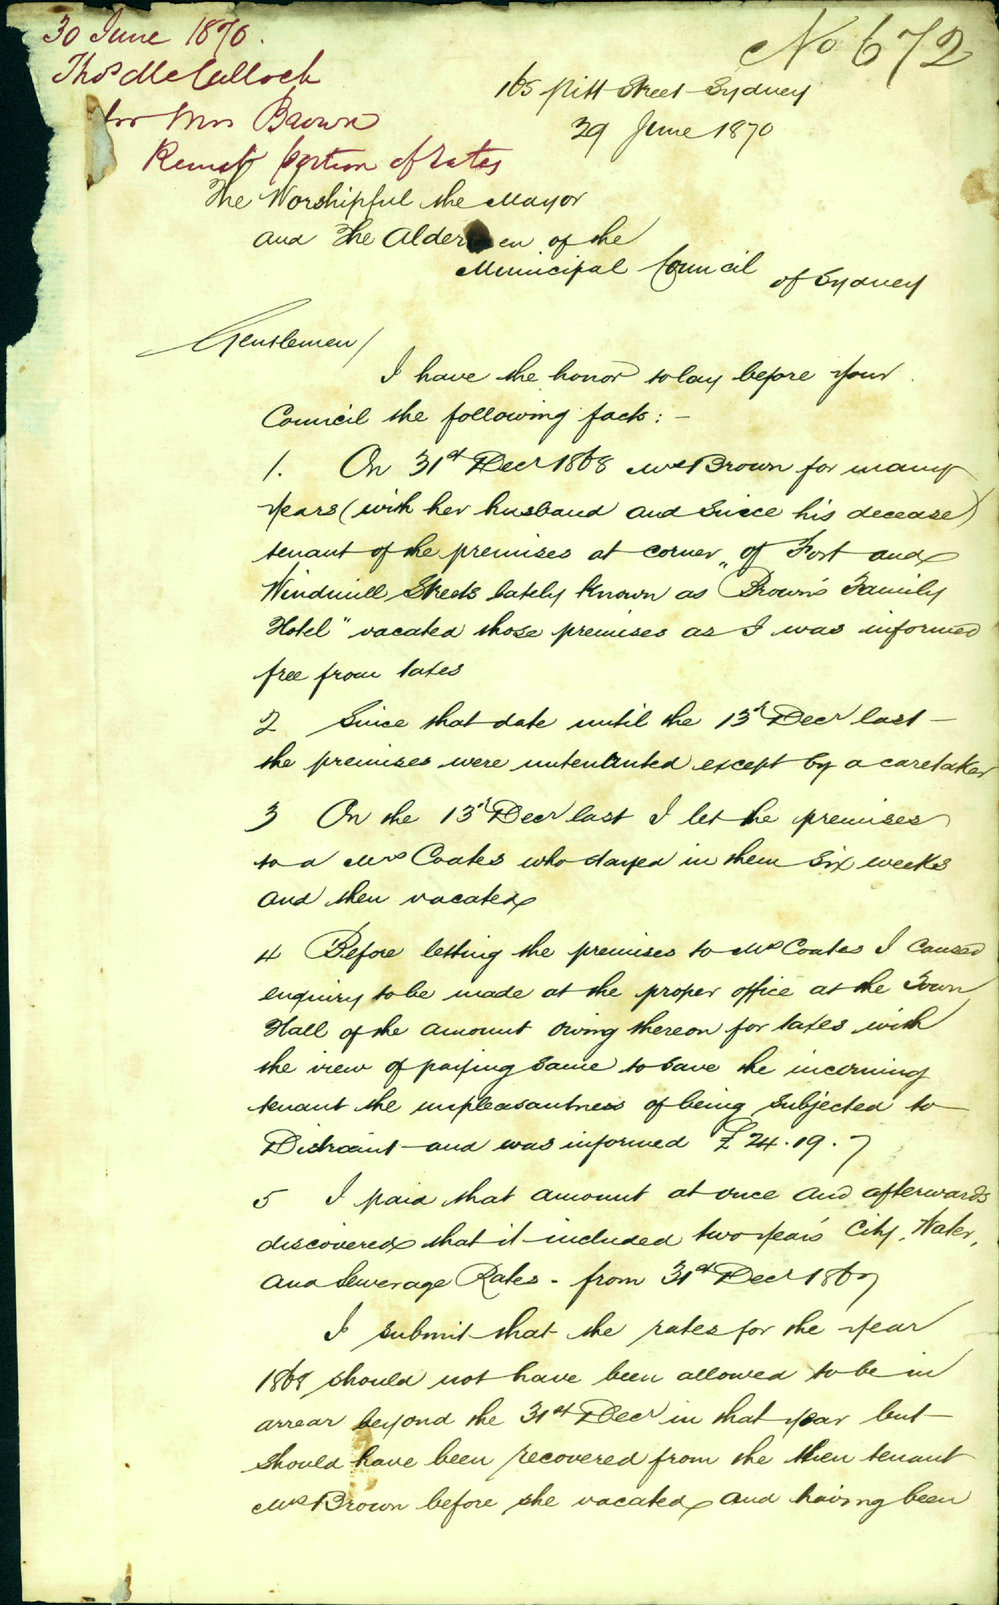 30 June 1870.
Thos McCulloch
for Mrs Brown
Remit portion of rates
No 672
165 Pitt Street Sydney
29 June 1870
The Worshipful the Mayor
and The Aldermen of the
Municipal Council of Sydney
Gentlemen/
I have the honor to lay before your
Council the following facts: -
1. On 31st Decr 1868 Mrs Brown for many
years (with her husband and since his decease)
tenant of the premises at corner of Fort and
Windmill Streets lately known as "Brown's Family
Hotel" vacated those premises as I was informed
free from taxes
2 Since that date until the 13th Decr last -
the premises were untenanted except by a caretaker
3 On the 13th Decr last I let the premises
to a Mrs Coates who stayed in them six weeks
and then vacated
4 Before letting the premises to Mrs Coates I caused
enquiry to be made at the proper office at the Town
Hall of the amount owing thereon for taxes with
the view of paying same to save the incoming
tenant the unpleasantness of being subjected to
Distraint and was informed £24.19.7
5 I paid that amount at once and afterwards
discovered that it included two years City, Water,
and Sewerage Rates - from 31st Decr 1867
I submit that the rates for the year
1868 should not have been allowed to be in
arrear beyond the 31st Decr in that year but
should have been recovered from the then tenant
Mrs Brown before she vacated and having been